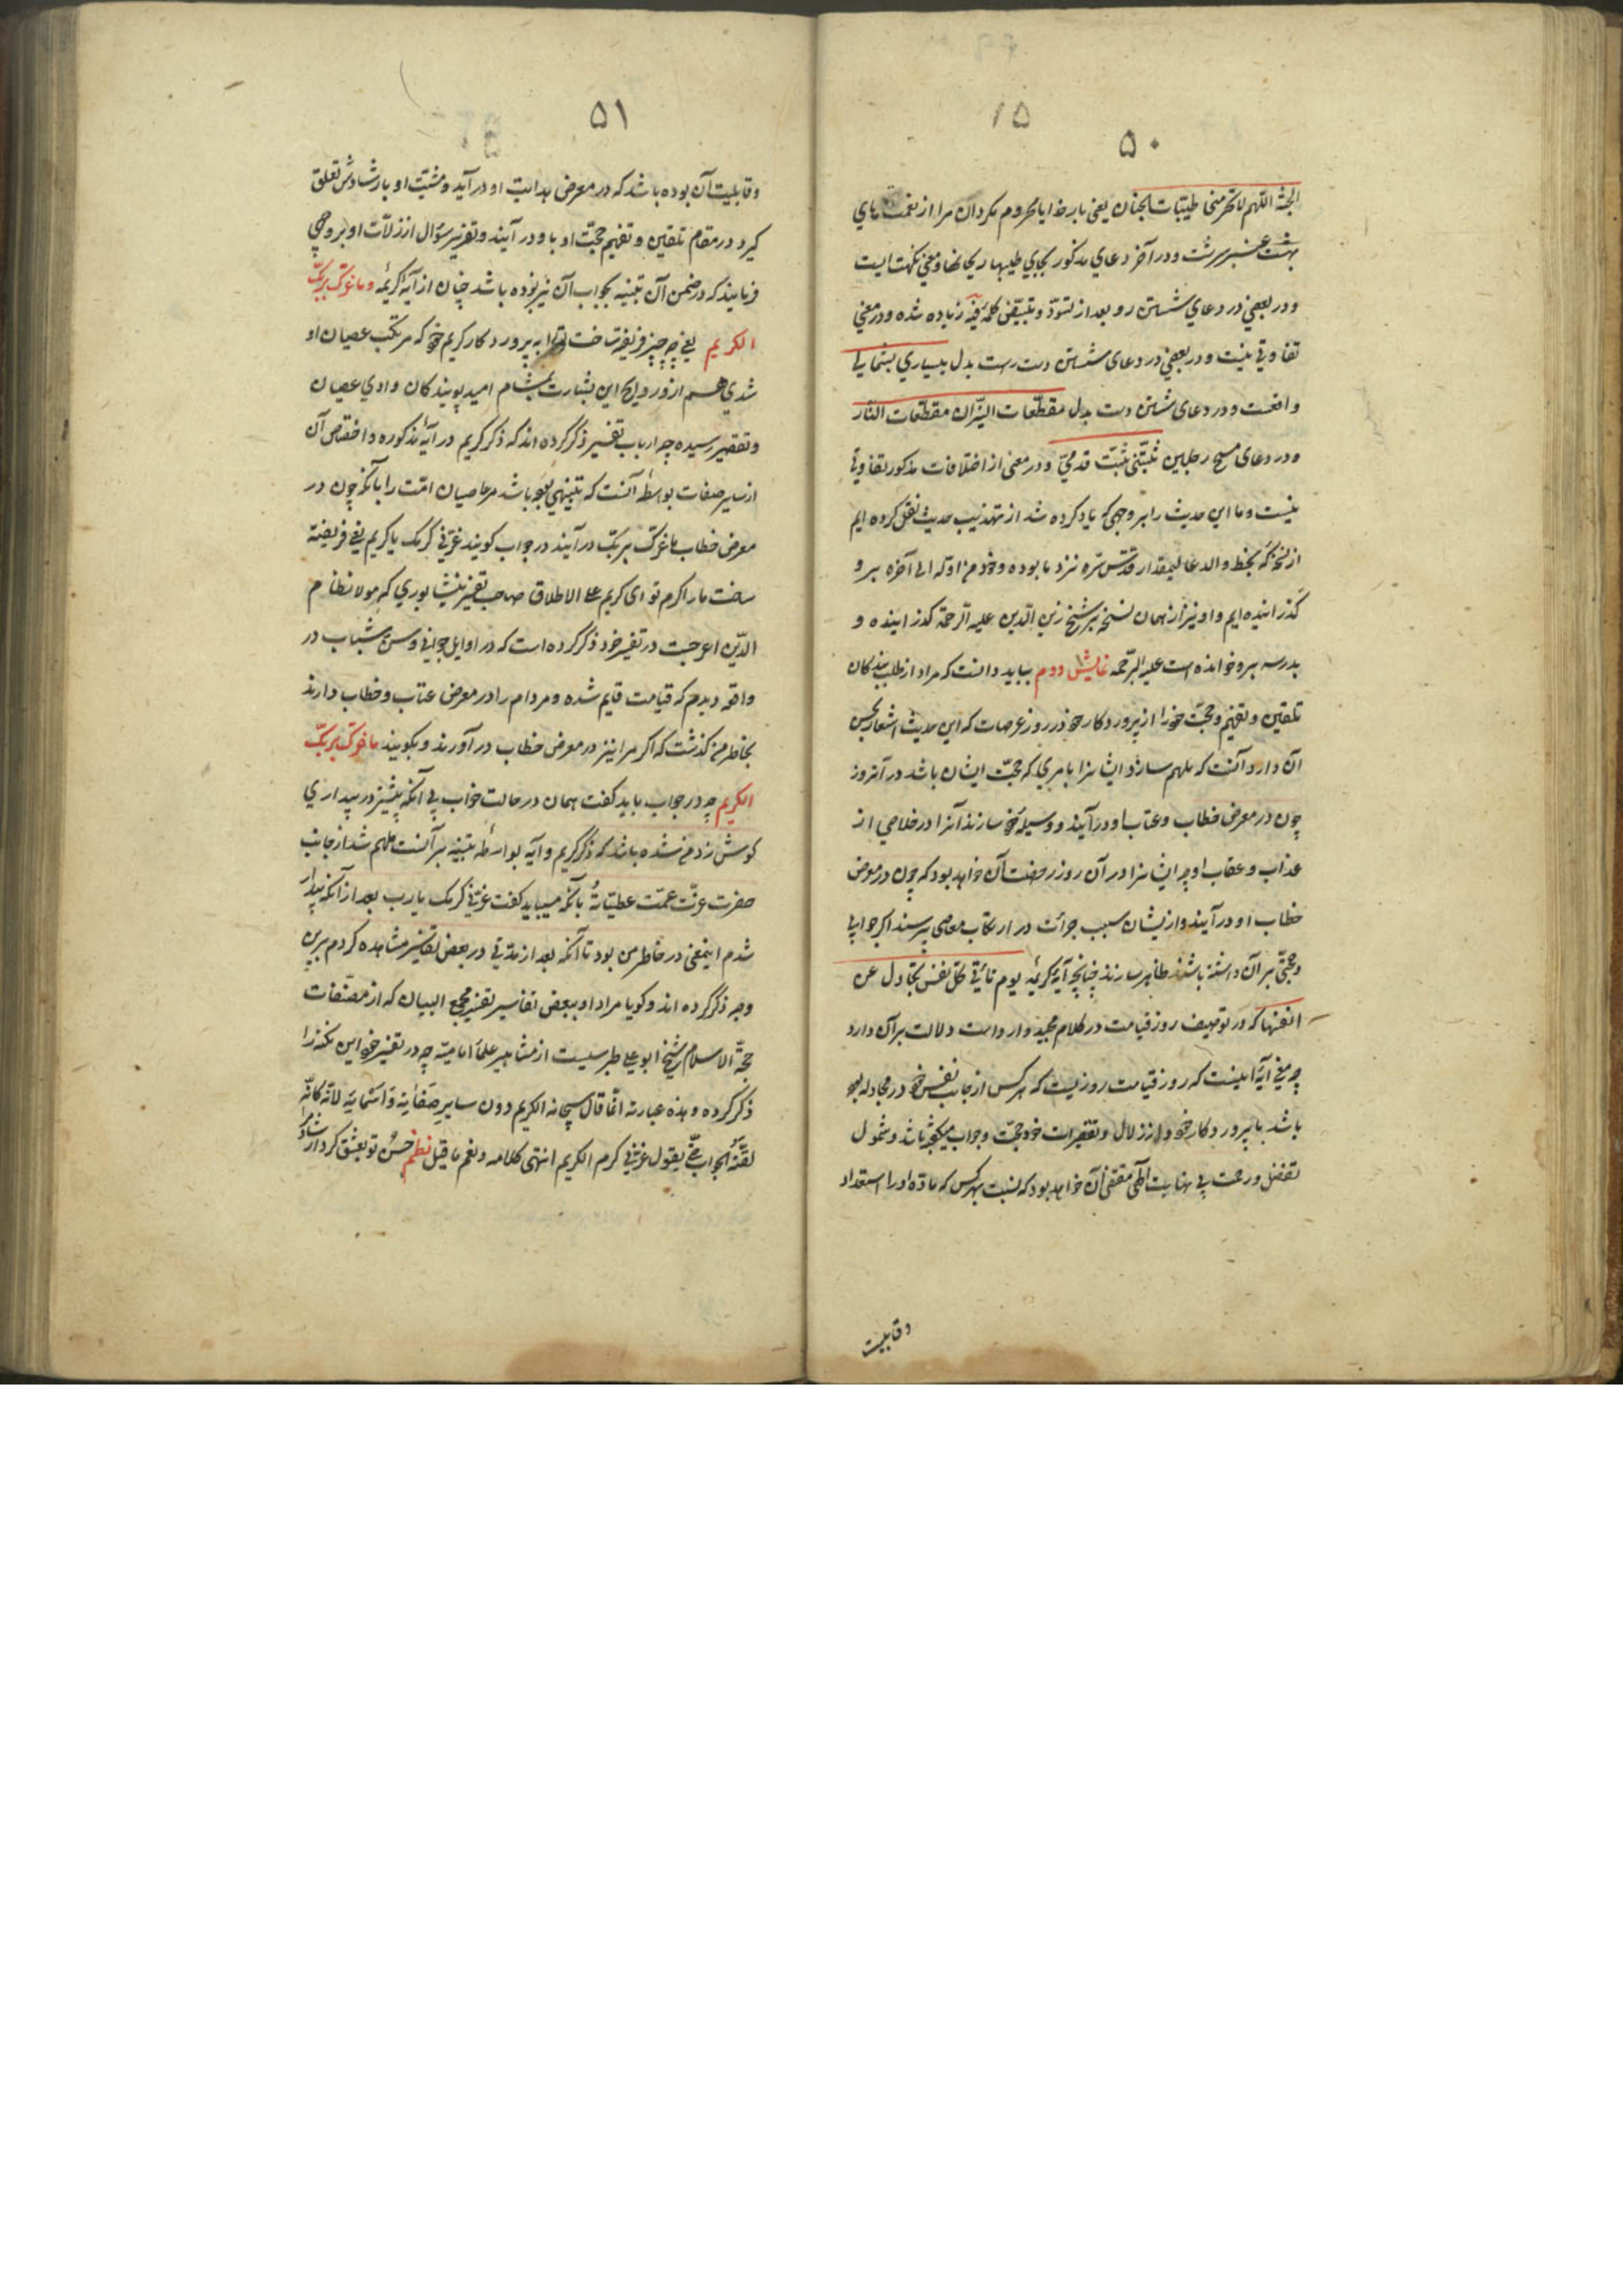 ۱۵
۵۰
الجنّة اللّهم لا تحرمنی طیّبات الجنان یعنی بار خدایا محروم مکردان مرا از نعمت های
بهشت عنبر سرشت و در آخر دعای مذکور بجای طیبها ریحانها و معنی نکهت است
و در بعضی در دعای شستن رو بعد از تسودّ و تبیضّ کلمهٔ فیه زیاده شده و در معنی
تفاوتی نیست و در بعضی در دعای شستن دست راست بدل بیساری بشمالی
واقعست و در دعای شستن دست بدل مقطّعات النیّران مقطّعات النّار
و در دعای مسح رجلین ثبّتنی ثبّت قدمیّ و در معنی از اختلافات مذکور تفاوتی
نیست و ما این حدیث را بر وجهی که یاد کرده شد از تهذیب حدیث نقل کرده ایم
از نسخهٔ که بخط والد عالیمقدار قدّس سرّه نزد ما بوده و خدمة او که الی آخره برو
گذرانیده ایم و او نیز از همان نسخه بر شیخ زین الدّین علیه الرّحمة گذرانیده و
بدرسه برو خوانده است علیه الرّحمه نمایش دوم بباید دانست که مراد از طلب بندکان
تلقین و تفهیم و حجّت خود را از پروردکار خود در روز عرصات که این حدیث اشعار بحسن
آن دارد آنست که ملهم سازد ایشانرا بامری که حجّت ایشان باشد در آنروز
چون در معرض خطاب و عتاب او درآیند و وسیلهٔ خود سازند آنرا در خلاصی از
عذاب و عقاب او چه ایشانرا در آن روز رخصت آن خواهد بود که چون در معرض
خطاب او درآیند و از ایشان سبب جرائت در ارتکاب معاصی پرسند اکر جوابی
و حجّتی بر آن داشته باشند ظاهر سازند چنانچه آیهٔ کریمه یوم تأتی کلّ نفس تجادل عن
انفسها که در توصیف روز قیامت در کلام مجید وارد است دلالت بر آن دارد
چه معنی آیه اینست که روز قیامت روزیست که هر کس از جانب نفس خود در مجادله بوده
باشد با پروردکار خود و از زلاّل و تقصیرات خود حجّت و جواب میکفته باشد و شمول
تفضل و رحمت بی نهایت الهی مقتضی آن خواهد بود که نسبت بهر کس که مادّه او را استعداد
و قابلیت
۵۱
و قابلیت آن بوده باشد که در معرض هدایت او درآید و مشیّت او بارشادش تعلق
کیرد در مقام تلقین و تفهیم حجّت او باو درآیند و تقریر سؤال از زلاّت او بر وجهی
فرمایند که در ضمن آن تنبیه بجواب آن نیز بوده باشد چنان از آیهٔ کریمهٔ و ما غرّک بربّک
الکریم یعنی چه چیز فریفته ساخت ترا به پروردکار کریم خود که مرتکب عصیان او
شدی هم از ورود این بشارت بمشام امید پویندکان وادی عصیان
و تقصیر رسیده چه ارباب تفسیر ذکر کرده اند که ذکر کریم در آیهٔ مذکوره و اختصاص آن
از سایر صفات بواسطهٔ آنست که تنبیهی بوده باشد مر عاصیان امّت را بآنکه چون در
معرض خطاب ما غرّک بربّک درآیند در جواب کویند غرّنی کرمک یا کریم یعنی فریفته
ساخت مارا کرم تو ای کریم علی الاطلاق صاحب تفسیر نیشابوری که مولا نظام
الدّین اعرجست در تفسیر خود ذکر کرده است که در اوایل جوانی و سن شباب در
واقعه دیدم که قیامت قایم شده و مردم را در معرض عتاب و خطاب دارند
بخاطرم گذشت که اکر مرا نیز در معرض خطاب درآورند و بکویند ما غرّک بربّک
الکریم چه در جواب باید گفت همان در حالت خواب بی آنکه پیشتر در بیداری
کوش زد من شده باشد که ذکر کریم و آیه بواسطهٔ تنبیه بر آنست ملهم شد از جانب
حضرت عزّت عمّت عطیّاتهُ بآنکه میباید گفت غرّنی کرمک یا رب بعد از آنکه بیدار
شدم اینمعنی در خاطر من بود تا آنکه بعد از مدّتی در بعض تفاسیر مشاهده کردم برین
وجه ذکر کرده اند و کویا مراد او ببعض تفاسیر تفسیر مجمع البیان که از مصنّفات
حجّة الاسلام شیخ ابو علی طبرسیست از مشاهیر علمآء امامیّه چه در تفسیر خود این نکته را
ذکر کرده و هذه عبارته انّما قال سبحانه الکریم دون سایر صفاته و اسمائه لانّه کانّه
لقّنهُ الجواب حتّی یقول غرّنی کرم الکریم انتهی کلامه و نعم ما قیل نظم حسن تو بعشق کرد ارشاد مرا